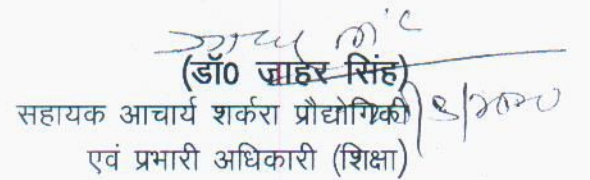 (डॉ0 जाहेर सिंह)
सहायक आचार्य शर्करा प्रौद्योगिकी
एवं प्रभारी अधिकारी (शिक्षा)